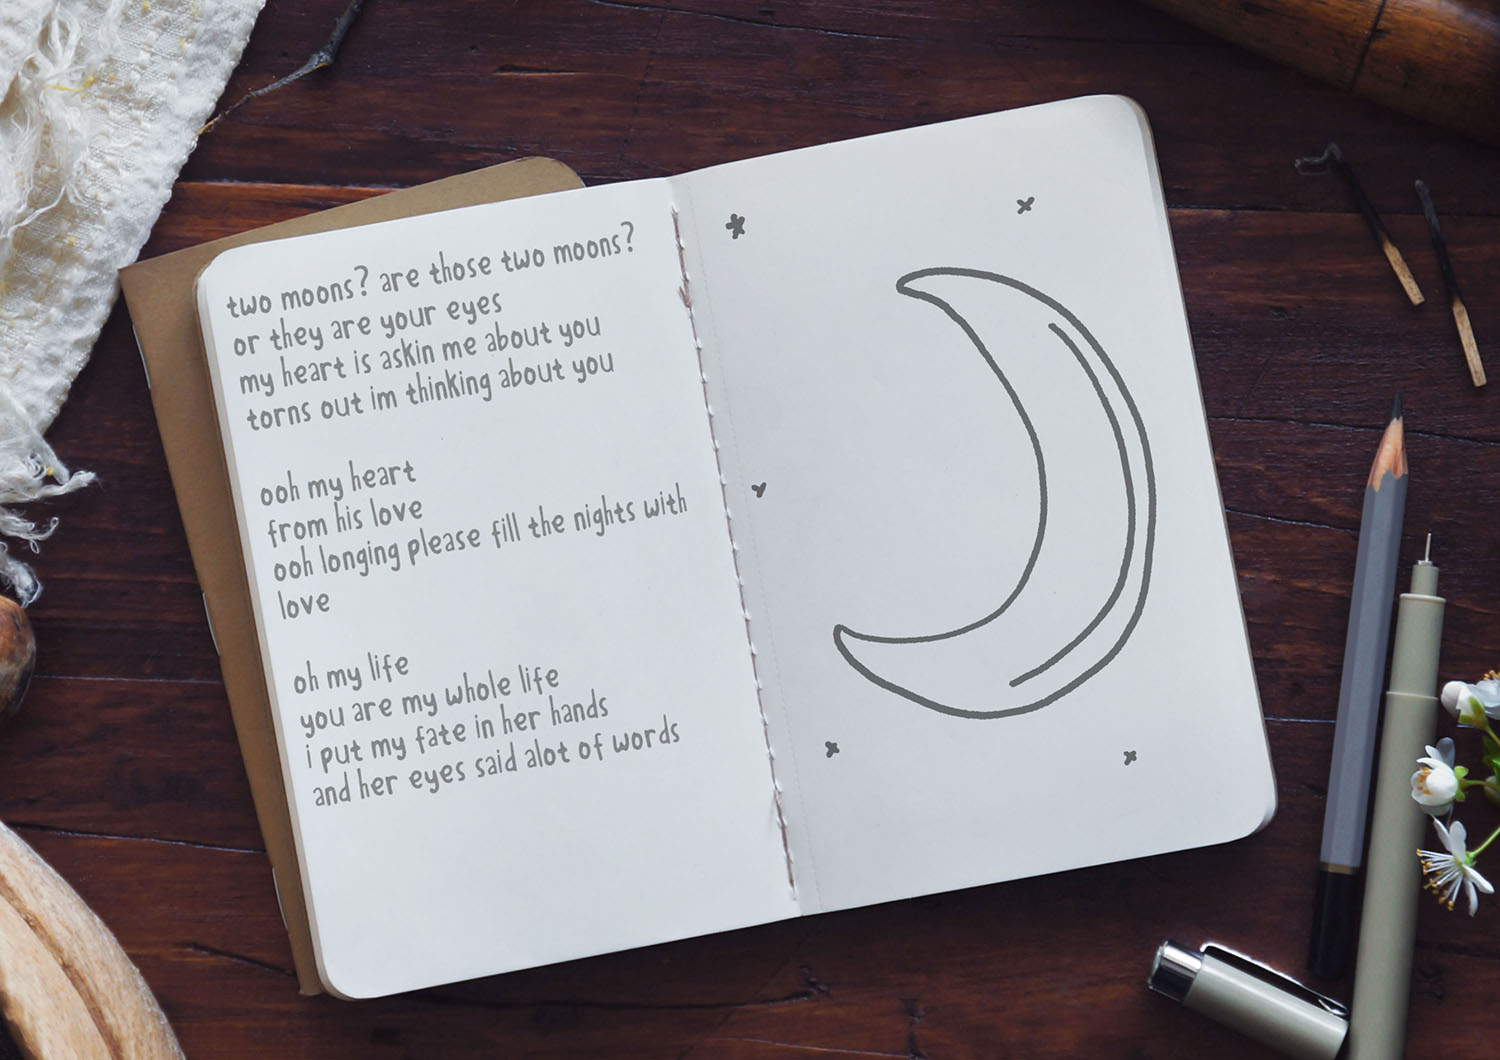 two moons? are those two moons?
or they are your eyes
my heart is askin me about you
torns out im thinking about you
ooh my heart
from his love
ooh longing please fill the nights with
love
oh my life
you are my whole life
i put my fate in her hands
and her eyes said alot of words